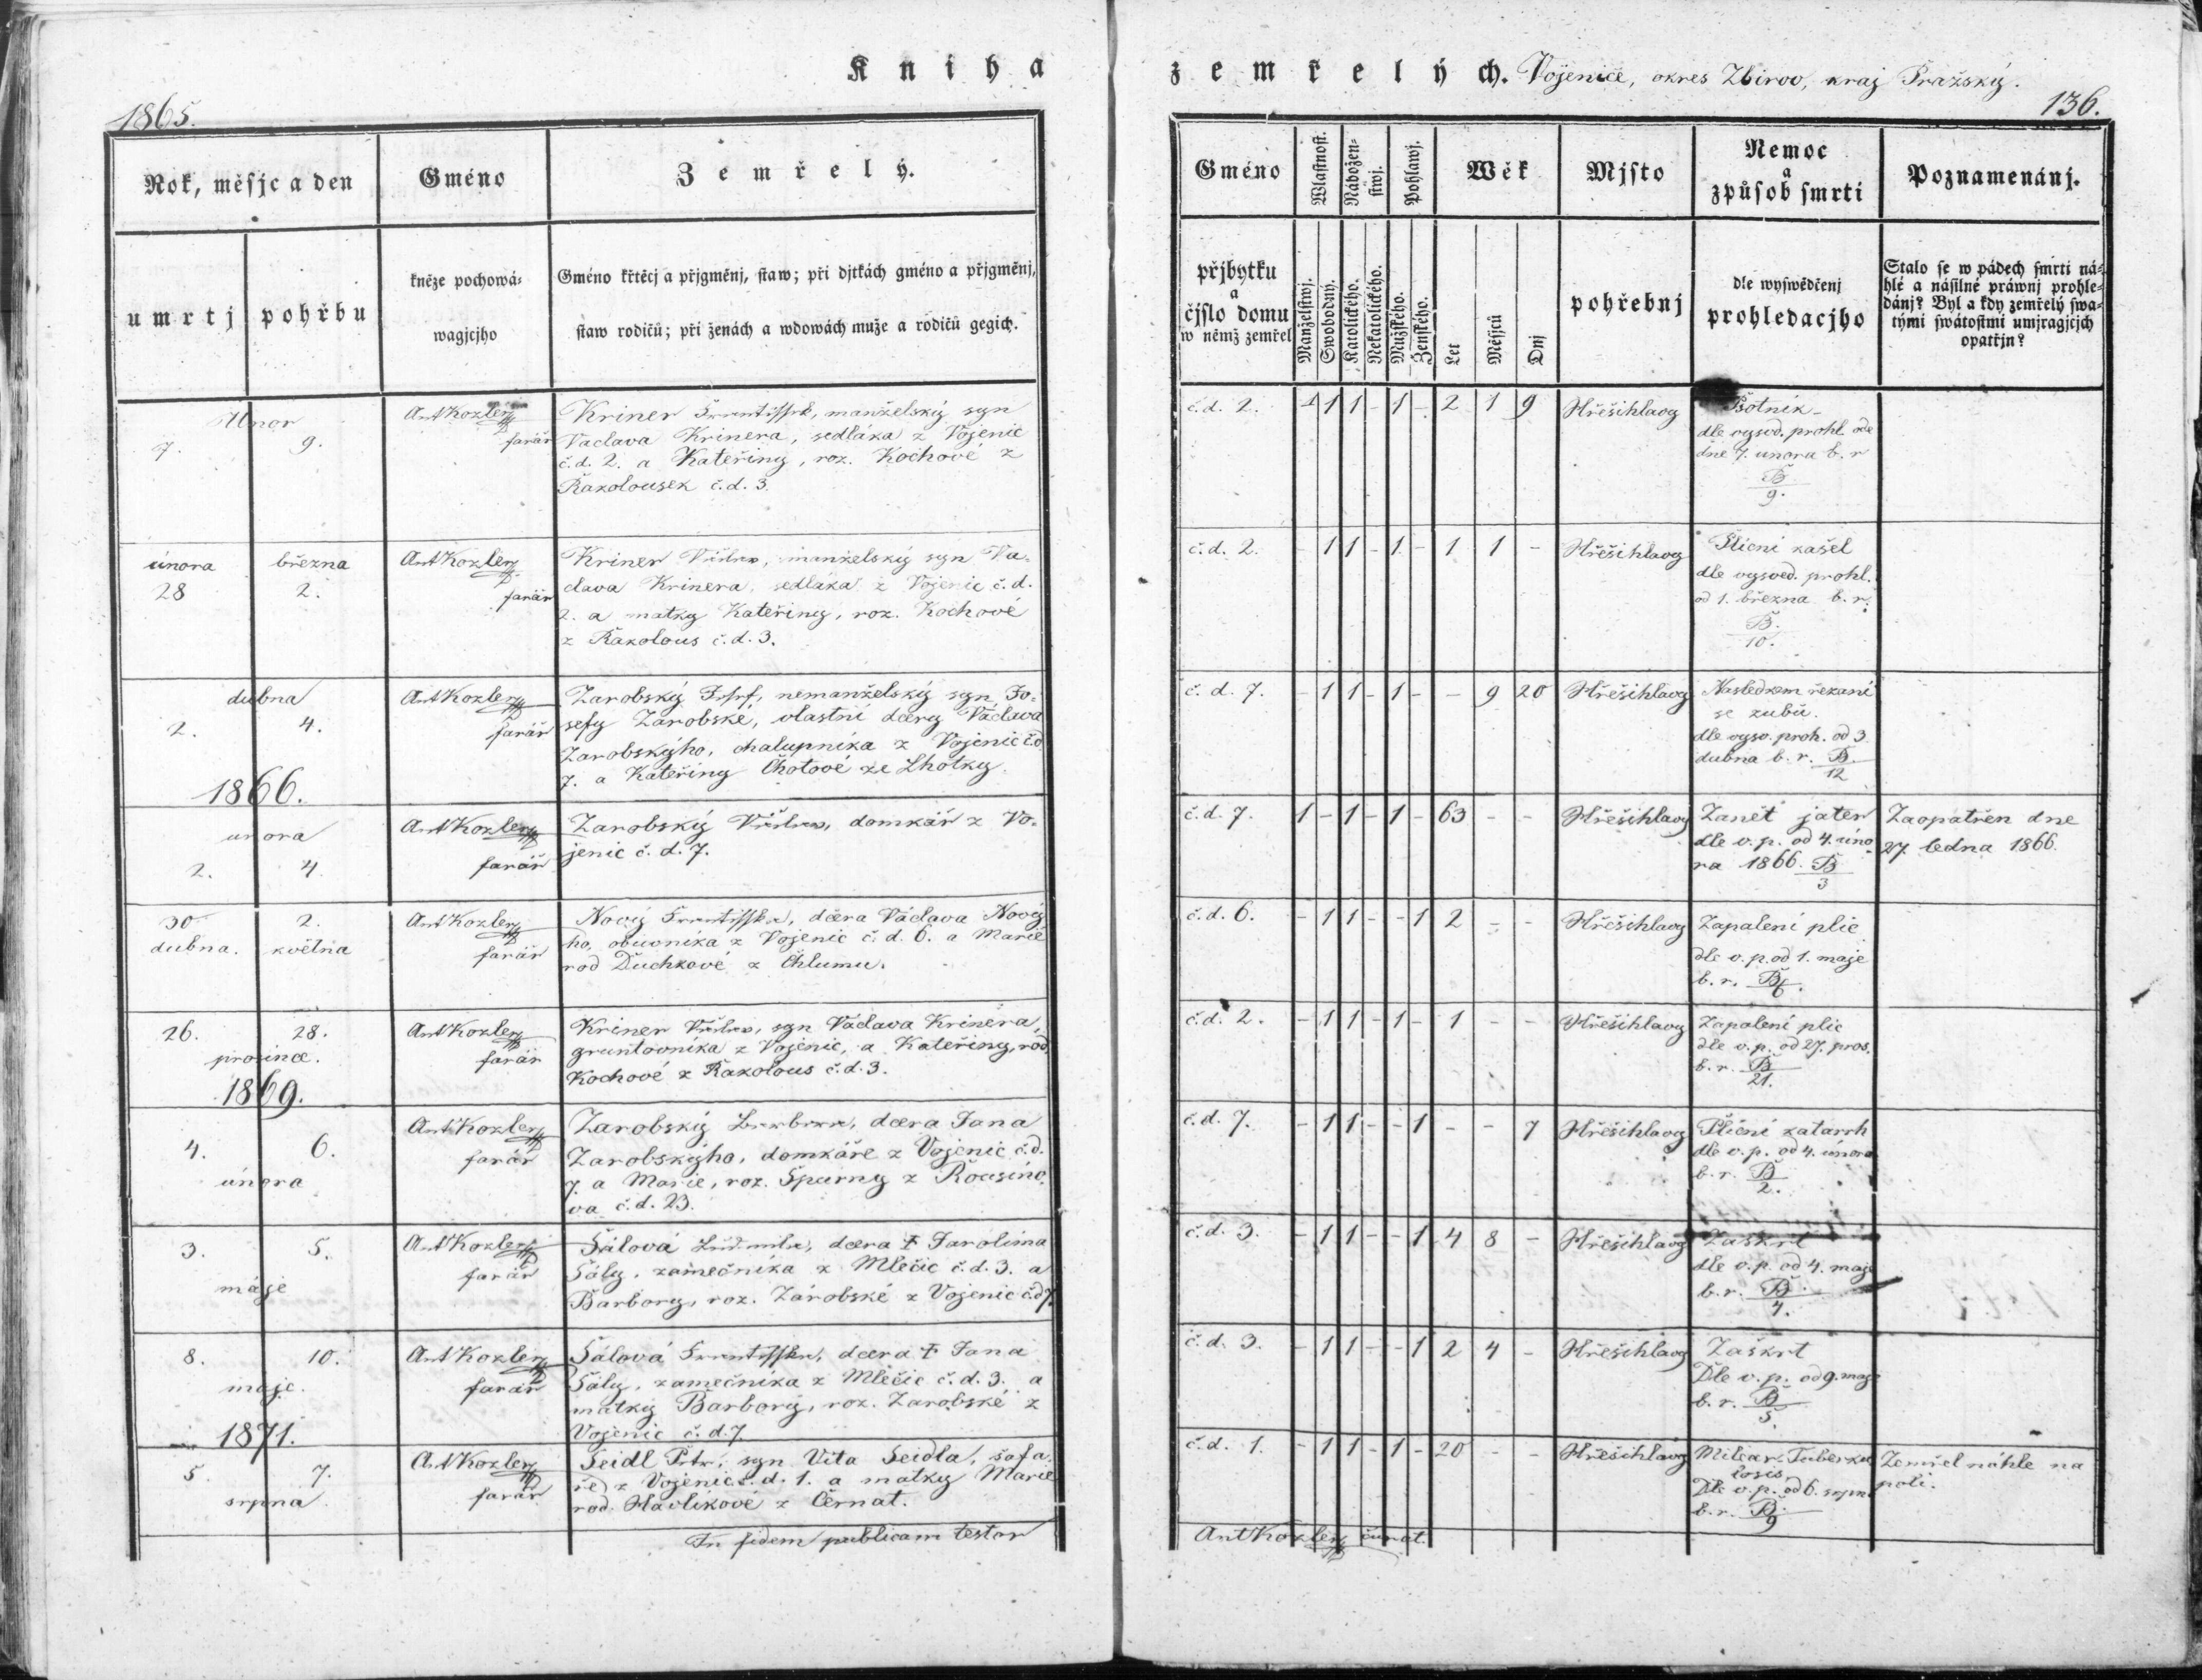 Kniha
zemřelých. Vojenice, okres Zbirov, kraj Pražský.
1865.
136.
Rok, měsjc a den
Gméno
Zemřelý.
umrtj
pohřbu
kněze pochowá-
wagjcjho
Gméno křtěcj a přjgměnj, staw; při djtkách gméno a přjgměnj,
staw rodičů; při ženách a wdowách muže a rodičů gegich.
Gméno
přjbytku
a
čjslo domu
w němž zemřel
Wlastnost.
Manželstwj.
Swobodný.
Nábožen-
stwj.
Katolického.
Nekatolického.
Pohlawj.
Mužského.
Ženského.
Wěk
Let
Měsjců
Dnj
Mjsto
pohřebnj
Nemoc
a
způsob smrti
dle wyswědčenj
prohledacjho
Poznamenánj.
Stalo se w pádech smrti ná-
hlé a násilné práwnj prohle-
dánj? Byl a kdy zemřelý swa-
tými swátostmi umjragjcjch
opatřjn?
Unor
7. 9.
Ant Kozler
farář
Kriner Frantissek, manželský syn
Vaclava Krinera, sedláka z Vojenic
č.d. 2. a Kateřiny, roz. Kochové z
Rakolousek č.d. 3.
č.d. 2. 1 1 - 1 - 2 1 9 Hřešihlavy
Psotnik
dle vysvd. prohl. ode
dne 7. unora b. r
B
9.
února března
28 2.
Ant Kozler
farář
Kriner Václav, manželský syn Va-
clava Krinera, sedláka z Vojenic č.d.
2. a matky Kateřiny, roz. Kochové
z Rakolous č.d. 3.
č.d. 2. 1 1 - 1 - 1 1 - Hřešihlavy
Plicní kašel
dle vysved. prohl.
od 1. března b. r.
B.
10.
dubna
2. 4.
Ant Kozler
farář
Zarobský Josef, nemanželský syn Jo-
sefy Zarobské, vlastní dcery Václava
Zarobskýho, chalupníka z Vojenic č.d
7. a Kateřiny Chotové ze Lhotky.
č. d. 7. - 1 1 - 1 - - 9 20 Hřešihlavy
Nasledkem řezaní
se zubů.
dle vysv. proh. od 3
dubna b. r. B.
12
1866.
unora
2. 4.
Ant Kozler
farář
Zarobský Václav, domkář z Vo-
jenic č. d. 7.
č.d. 7. 1 - 1 - 1 - 63 - - Hřešihlavy
Zanět jater
dle v. p. od 4. úno
ra 1866. B
3
Zaopatřen dne
27. ledna 1866.
30 2.
dubna. května
Ant Kozler
farář
Nový Frantisska, dcera Václava Nový
ho, obuvníka z Vojenic č. d. 6. a Marie
rod Duchkové z Chlumu.
č.d. 6. - 1 1 - - 1 2 - - Hřešihlavy
Zapalení plic
dle v. p. od 1. maje
b. r. B
6.
26. 28.
prosince.
Ant Kozler
farář
Kriner Václav, syn Václava Krinera,
gruntovníka z Vojenic, a Kateřiny, rod
Kochové z Rakolous č.d. 3.
č.d. 2. - 1 1 - 1 - 1 - - Hřešihlavy
Zapalení plic
dle v. p. od 27. pros.
b. r. B
21.
1869.
4. 6.
února
Ant Kozler
farář
Zarobský Barbora, dcera Jana
Zarobskýho, domkáře z Vojenic č.d.
7. a Marie, roz. Spurny z
va č.d. 23.
č.d. 7. - 1 1 - - 1 - - 7 Hřešihlavy
Plicní katarrh
dle v. p. od 4. února
b. r. B
2.
3. 5.
máje
Ant Kozler
farář
Šálová Ludmila, dcera † Jarolima
Šály, zamečníka z Mlečic č.d. 3. a
Barbory, roz. Zárobské z Vojenic č.d 7.
č.d. 3. - 1 1 - - 1 4 8 - Hřešihlavy
Zaškrt
dle v. p. od 4. maje
b. r. B
4.
8. 10.
maje.
Ant Kozler
farář
Šálová Frantisska, dcera † Jana
Šály, zamečníka z Mlečic č.d. 3. a
matky Barbory, roz. Zarobské z
Vojenic č. d. 7.
č.d. 3. - 1 1 - - 1 2 4 - Hřešihlavy
Zaškrt
Dle v. p. od 9. maje
b. r. B
5
1871.
5. 7.
srpna
Ant Kozler
farář
Seidl Petr, syn Vita Seidla, šafa-
ře z Vojenic č.d. 1. a matky Marie
rod. Havlikové z Černat.
č.d. 1. - 1 1 - 1 - 20 - - Hřešihlavy
Miliar. Tuberku
losis
Dle v. p. od 6. srpn.
b. r. B
9
Zemřel náhle na
poli.
In fidem publicam testor
Ant Kozler curat.